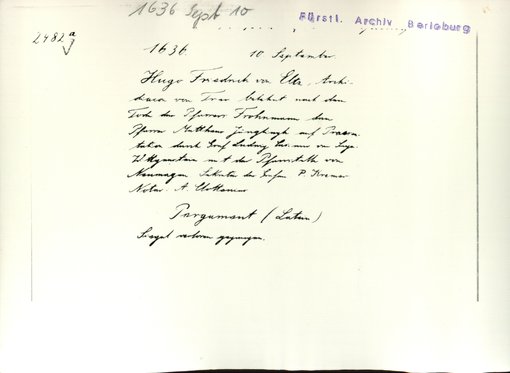 1636 Sept 10
Fürstl. Archiv Berleburg
2482a
1636. 10 September
Hugo Friedrich von Eltz, Archi-
diacon von Trier belehnt nach dem
Tode des Pfarrers Frohnmann den
Pfarrer Matthaeus auf Praesen-
tation durch Graf Ludwig von Sayn
Wittgenstein mit der Pfarrstelle von
Neumagen Sekretär des Grafen P. Kremer
Notar. A.
Pergament (Latein)
Siegel verloren gegangen.